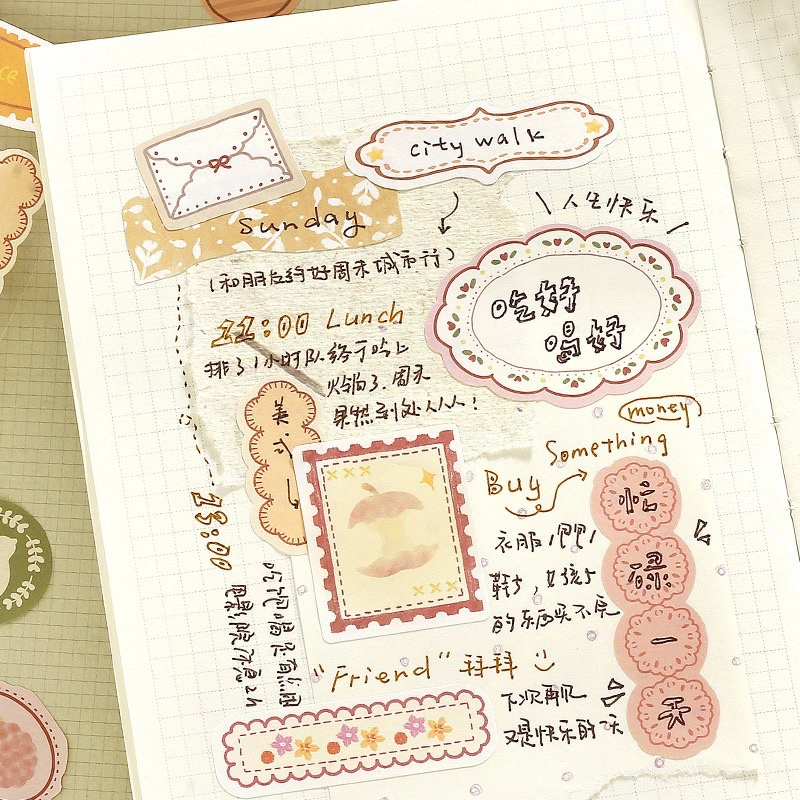 city walk
sunday
人生快乐
(和朋友约好周末城市行)
吃好
喝好
11:00 Lunch
排了1小时队终于吃上
火锅了.周末
果然到处人人人!
美式
money
Something
Buy
衣服/包包/
鞋子,女孩子
的东西买不完
忙
碌
一
天
"Friend" 拜拜
下次再见
又是快乐的一天